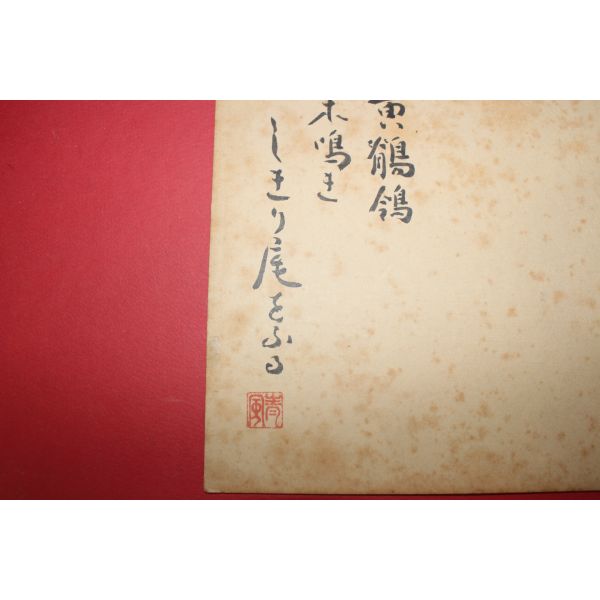 黄鶺鴒
来鳴き
しきり尾をふる